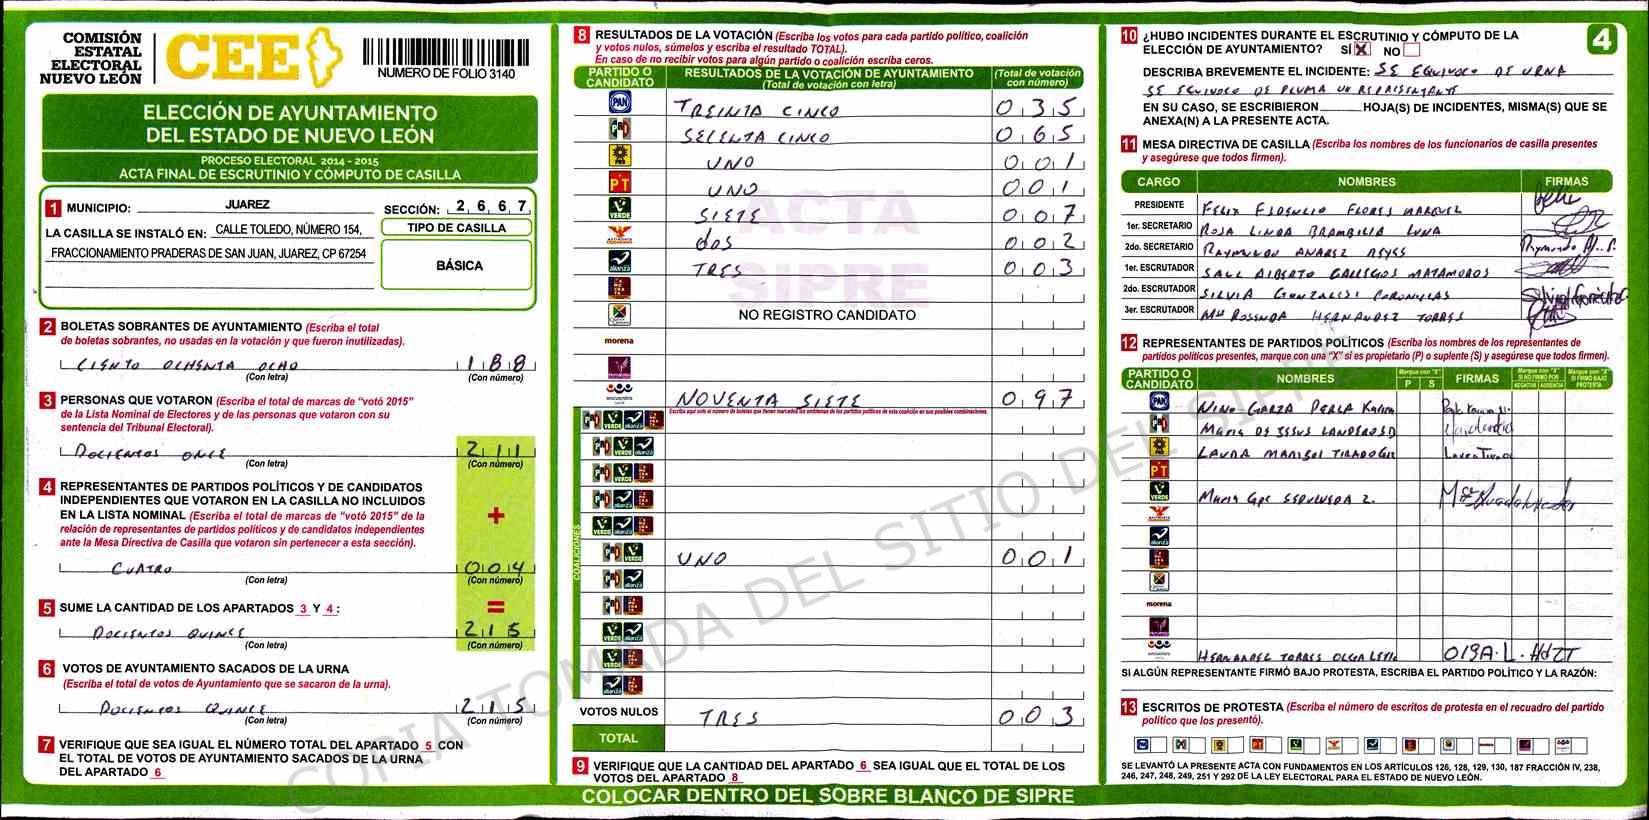 COMISIÓN
ESTATAL
ELECTORAL
NUEVO LEÓN
CEE
NUMERO DE FOLIO 3140
ELECCIÓN DE AYUNTAMIENTO
DEL ESTADO DE NUEVO LEÓN
PROCESO ELECTORAL 2014 - 2015
ACTA FINAL DE ESCRUTINIO Y CÓMPUTO DE CASILLA
1 MUNICIPIO: JUAREZ SECCIÓN: 2 6 6 7
LA CASILLA SE INSTALÓ EN: CALLE TOLEDO, NÚMERO 154,
FRACCIONAMIENTO PRADERAS DE SAN JUAN, JUAREZ, CP 67254
TIPO DE CASILLA
BÁSICA
2 BOLETAS SOBRANTES DE AYUNTAMIENTO (Escriba el total
de boletas sobrantes, no usadas en la votación y que fueron inutilizadas).
CIENTO OCHENTA OCHO 188
(Con letra) (Con número)
3 PERSONAS QUE VOTARON (Escriba el total de marcas de "votó 2015"
de la Lista Nominal de Electores y de las personas que votaron con su
sentencia del Tribunal Electoral).
DOCIENTOS ONCE 211
(Con letra) (Con número)
4 REPRESENTANTES DE PARTIDOS POLÍTICOS Y DE CANDIDATOS
INDEPENDIENTES QUE VOTARON EN LA CASILLA NO INCLUIDOS
EN LA LISTA NOMINAL (Escriba el total de marcas de "votó 2015" de la
relación de representantes de partidos políticos y de candidatos independientes
ante la Mesa Directiva de Casilla que votaron sin pertenecer a esta sección).
+
CUATRO 004
(Con letra) (Con número)
5 SUME LA CANTIDAD DE LOS APARTADOS 3 Y 4: =
DOCIENTOS QUINCE 215
(Con letra) (Con número)
6 VOTOS DE AYUNTAMIENTO SACADOS DE LA URNA
(Escriba el total de votos de Ayuntamiento que se sacaron de la urna).
DOCIENTOS QUINCE 215
(Con letra) (Con número)
7 VERIFIQUE QUE SEA IGUAL EL NÚMERO TOTAL DEL APARTADO 5 CON
EL TOTAL DE VOTOS DE AYUNTAMIENTO SACADOS DE LA URNA
DEL APARTADO 6
8 RESULTADOS DE LA VOTACIÓN (Escriba los votos para cada partido político, coalición
y votos nulos, súmelos y escriba el resultado TOTAL).
En caso de no recibir votos para algún partido o coalición escriba ceros.
PARTIDO O CANDIDATO
RESULTADOS DE LA VOTACIÓN DE AYUNTAMIENTO
(Total de votación con letra)
(Total de votación con número)
PAN TREINTA CINCO 035
PRI SECENTA CINCO 065
PRD UNO 001
PT UNO 001
VERDE SIETE 007
dos 002
alianza TRES 003
NO REGISTRO CANDIDATO
morena
encuentro NOVENTA SIETE 097
Escriba aquí solo el número de boletas que tienen marcados los emblemas de los partidos políticos de esta coalición en sus posibles combinaciones.
COALICIONES
PRI VERDE UNO 001
VOTOS NULOS TRES 003
TOTAL
ACTA
SIPRE
9 VERIFIQUE QUE LA CANTIDAD DEL APARTADO 6 SEA IGUAL QUE EL TOTAL DE LOS
VOTOS DEL APARTADO 8
COLOCAR DENTRO DEL SOBRE BLANCO DE SIPRE
10 ¿HUBO INCIDENTES DURANTE EL ESCRUTINIO Y CÓMPUTO DE LA
ELECCIÓN DE AYUNTAMIENTO? SÍ X NO
4
DESCRIBA BREVEMENTE EL INCIDENTE: SE EQUIVOCO DE URNA
SE EQUIVOCO DE PLUMA UN REPRESENTANTE
EN SU CASO, SE ESCRIBIERON HOJA(S) DE INCIDENTES, MISMA(S) QUE SE
ANEXA(N) A LA PRESENTE ACTA.
11 MESA DIRECTIVA DE CASILLA (Escriba los nombres de los funcionarios de casilla presentes
y asegúrese que todos firmen).
CARGO NOMBRES FIRMAS
PRESIDENTE FELIX FIDENCIO FLORES MARQUEZ
1er. SECRETARIO ROSA LINDA BRAMBILIA LUNA
2do. SECRETARIO RAYMUNDO REYES Raymundo
1er. ESCRUTADOR SAUL ALBERTO GALLEGOS MATAMOROS
2do. ESCRUTADOR SILVIA Silvia
3er. ESCRUTADOR Ma ROSENDA HERNANDEZ TORRES
12 REPRESENTANTES DE PARTIDOS POLÍTICOS (Escriba los nombres de los representantes de
partidos políticos presentes, marque con una "X" si es propietario (P) o suplente (S) y asegúrese que todos firmen).
PARTIDO O CANDIDATO
NOMBRES
Marque con "X"
P S
FIRMAS
Marque con "X" SI NO FIRMÓ POR
NEGATIVA AUSENCIA
Marque con "X" SI FIRMÓ BAJO PROTESTA
PAN NINO GARZA PERLA Karina
PRI Maria DE JESUS LANDEROS D
PRD LAURA MARISOL TIRADO
PT
VERDE Maria Gpe SEPULVEDA Z.
alianza
morena
encuentro HERNANDEZ TORRES OLGA
SI ALGÚN REPRESENTANTE FIRMÓ BAJO PROTESTA, ESCRIBA EL PARTIDO POLÍTICO Y LA RAZÓN:
13 ESCRITOS DE PROTESTA (Escriba el número de escritos de protesta en el recuadro del partido
político que los presentó).
SE LEVANTÓ LA PRESENTE ACTA CON FUNDAMENTOS EN LOS ARTÍCULOS 126, 128, 129, 130, 187 FRACCIÓN IV, 238,
246, 247, 248, 249, 251 Y 292 DE LA LEY ELECTORAL PARA EL ESTADO DE NUEVO LEÓN.
COPIA TOMADA DEL SITIO DEL SIPRE